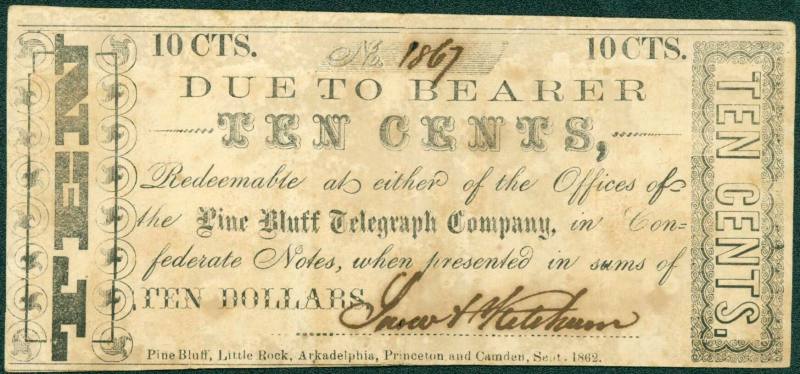 10 CTS. No. 1867 10 CTS.
DUE TO BEARER
TEN CENTS,
Redeemable at either of the Offices of
the Pine Bluff Telegraph Company, in Con=
federate Notes, when presented in sums of
TEN DOLLARS. Snow & Ketchum
Pine Bluff, Little Rock, Arkadelphia, Princeton and Camden, Sept. 1862.
TEN
TEN CENTS.